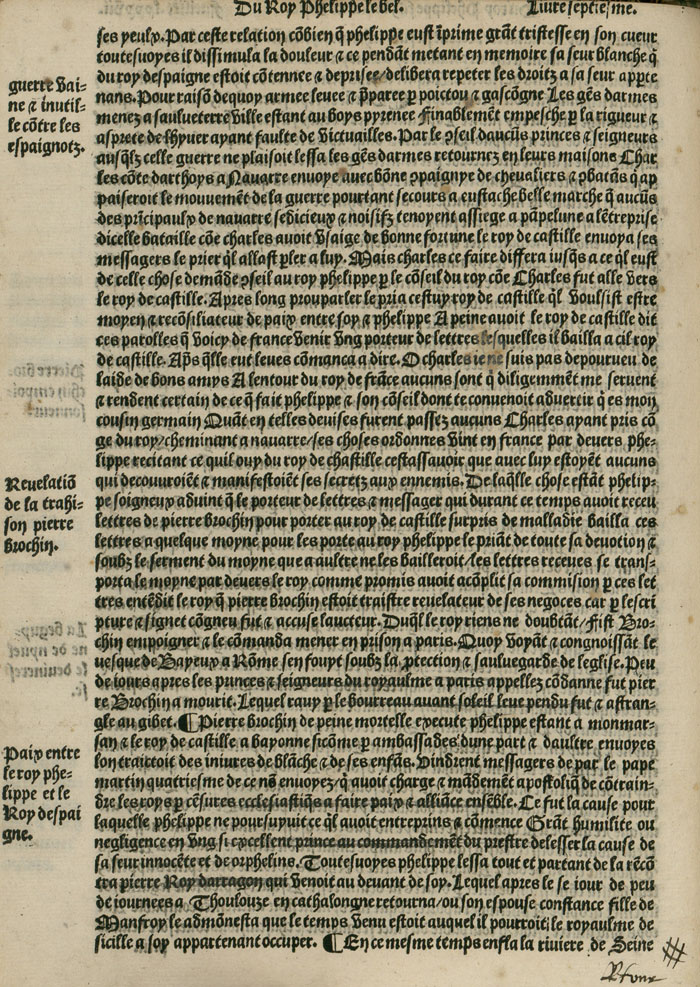 Du Roy Phelippe le bel. Liure septiesme.
ses yeulx. Par ceste relation cõbien q̃ phelippe eust ĩprime grãt tristesse en son cueur
toutesuoyes il dissimula la douleur & ce pendãt metant en memoire sa seur blanche q̃
du roy despaigne estoit cõtennee & deprisee/delibera repeter les droitz a sa seur apꝑte
nans. Pour raisõ dequoy armee leuee & p̃paree ꝑ poictou & gascõgne Les gẽs darmes
menez a saulueterre ville estant au boys pyrenee Finablemẽt empesche ꝑ la rigueur &
asprete de lhyuer ayant faulte de victuailles. Par le ꝯseil daucũs princes & seigneurs
ausq̃lz celle guerre ne plaisoit lessa les gẽs darmes retournez en leurs maisons Char
les cõte darthoys a Nauarre enuoye auec bõne ꝯpaignye de cheualiers & ꝯbatãs q̃ ap
paiseroit le mouuemẽt de la guerre pourtant secours a eustache belle marche q̃ aucũs
des prĩcipaulx de nauarre sedicieux & noisifz tenoyent assiege a pãpelune a lẽtreprise
dicelle bataille cõe charles auoit vsaige de bonne fortune le roy de castille enuoya ses
messagers le prier q̃l allast ꝑler a luy. Mais charles ce faire differa iusq̃s a ce q̃l eust
de celle chose demãde ꝯseil au roy phelippe ꝑ le cõseil du roy cõe Charles fut alle vers
le roy de castille. Apres long prouparler le pria cestuy roy de castille q̃l voulsist estre
moyen & recõsiliateur de paix entre soy & phelippe A peine auoit le roy de castille dit
ces parolles q̃ voicy de france venir vng porteur de lettres lesquelles il bailla a cil roy
de castille. Ap̃s q̃lle eut leues cõmanca a dire. O charles ie ne suis pas depourueu de
laide de bons amys A lentour du roy de frãce aucuns sont q̃ diligemmẽt me seruent
& rendent certain de ce q̃ fait phelippe & son cõseil dont te conuenoit aduertir q̃ es mon
cousin germain Quãt en telles deuises furent passez aucuns Charles ayant pris cõ
ge du roy/cheminant a nauarre/ses choses ordonnes vint en france par deuers phe-
lippe recitant ce quil ouy du roy de chastille cestassauoir que auec luy estoyẽt aucuns
qui decouuroiẽt & manifestoiẽt ses secretz aux ennemis. De laq̃lle chose estãt phelip-
pe soigneux aduint q̃ le porteur de lettres & messager qui durant ce temps auoit receu
lettres de pierre brochin pour porter au roy de castille surpris de malladie bailla ces
lettres a quelque moyne pour les porte au roy phelippe le priãt de toute sa deuotion &
soubz le serment du moyne que a aultre ne les bailleroit/les lettres receues se trans-
porta le moyne par deuers le roy comme promis auoit acõplit sa commision ꝑ ces let
tres entẽdit le roy q̃ pierre brochin estoit traistre reuelateur de ses negoces car ꝑ lescri
pture & signet cõgneu fut & accuse laucteur. Duq̃l le roy riens ne doubtãt/Fist Bro-
chin empoigner & le cõmanda mener en prison a paris. Quoy voyãt & congnoissãt le
uesque de Bayeux a Rõme sen fouyt soubz la ꝓtection & sauluegarde de leglise. Peu
de iours apres les princes & seigneurs du royaulme a paris appellez cõdanne fut pier
re Brochin a mourir. Lequel rauy ꝑ le bourreau auant soleil leue pendu fut & astran-
gle au gibet. ¶ Pierre brochin de peine mortelle execute phelippe estant a monmar-
san & le roy de castille a bayonne sicõme ꝑ ambassades dune part & daultre enuoyes
lon traictoit des iniures de blãche & de ses enfãs. Vindrent messagers de par le pape
martin quatriesme de ce nõ enuoyez/q̃ auoit charge & mãdemẽt apostoliq̃ de cõtrain-
dre les roys ꝑ cẽsures ecclesiastiq̃s a faire paix & alliãce ensẽble. Ce fut la cause pour
laquelle phelippe ne poursuyuit ce q̃l auoit entreprins & cõmence Grãt humilite ou
negligence en vng si excellent prince au commandemẽt du prestre delesser la cause de
sa seur innocẽte et de orphelins. Toutesuoyes phelippe lessa tout et partant de la rẽcõ
tra pierre Roy darragon qui venoit au deuant de soy. Lequel apres le seiour de peu
de iournees a Thoulouze en cathalongne retourna/ou son espouse constance fille de
Manfroy le admõnesta que le temps venu estoit auquel il pourroit le royaulme de
sicille a soy appartenant occuper. ¶ En ce mesme temps enfla la riuiere de Seine
guerre vai-
ne & inutil-
le cõtre les
espaignotz.
Reuelatiõ
de la trahi-
son pierre
brochin.
Paix entre
le roy phe-
lippe et le
Roy despai
gne.